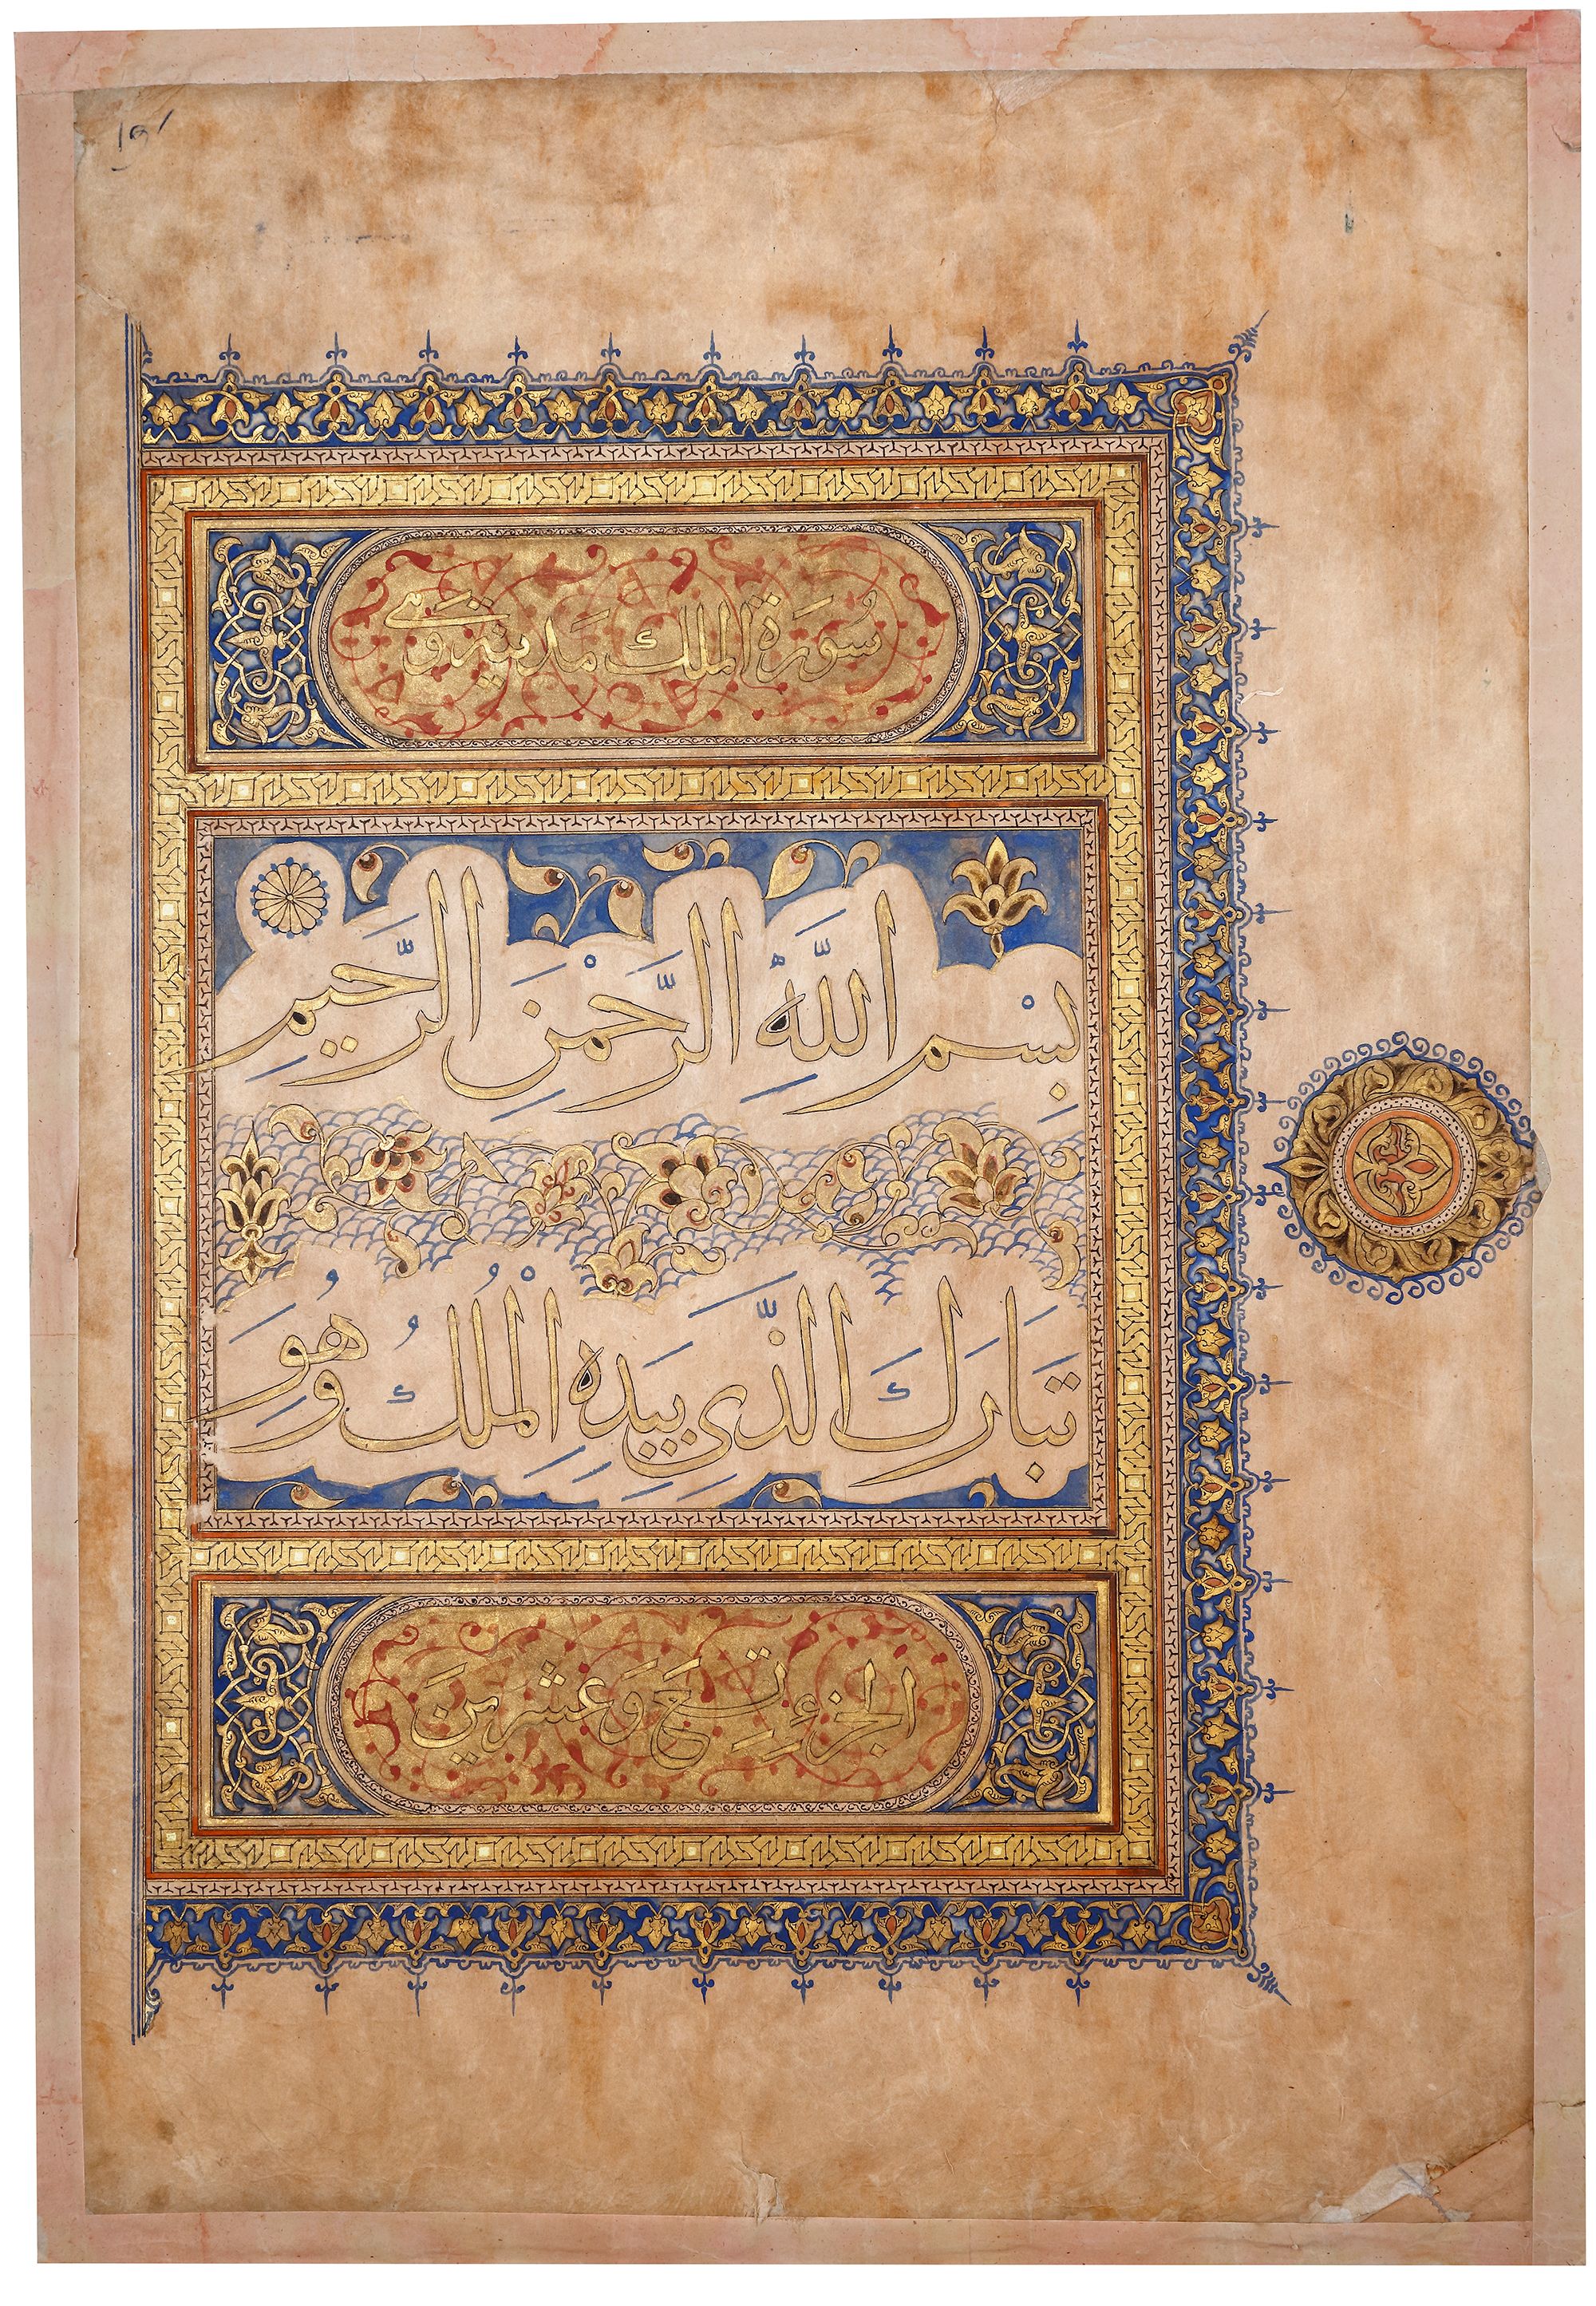 سُورَة الملك مَدنية وَهي
بِسْمِ اللَّهِ الرَّحْمَنِ الرَّحِيمِ
تَبَارَكَ الَّذِى بِيَدِهِ الْمُلْكُ وَهُوَ
الجزءِ تسع وَعشرينَ